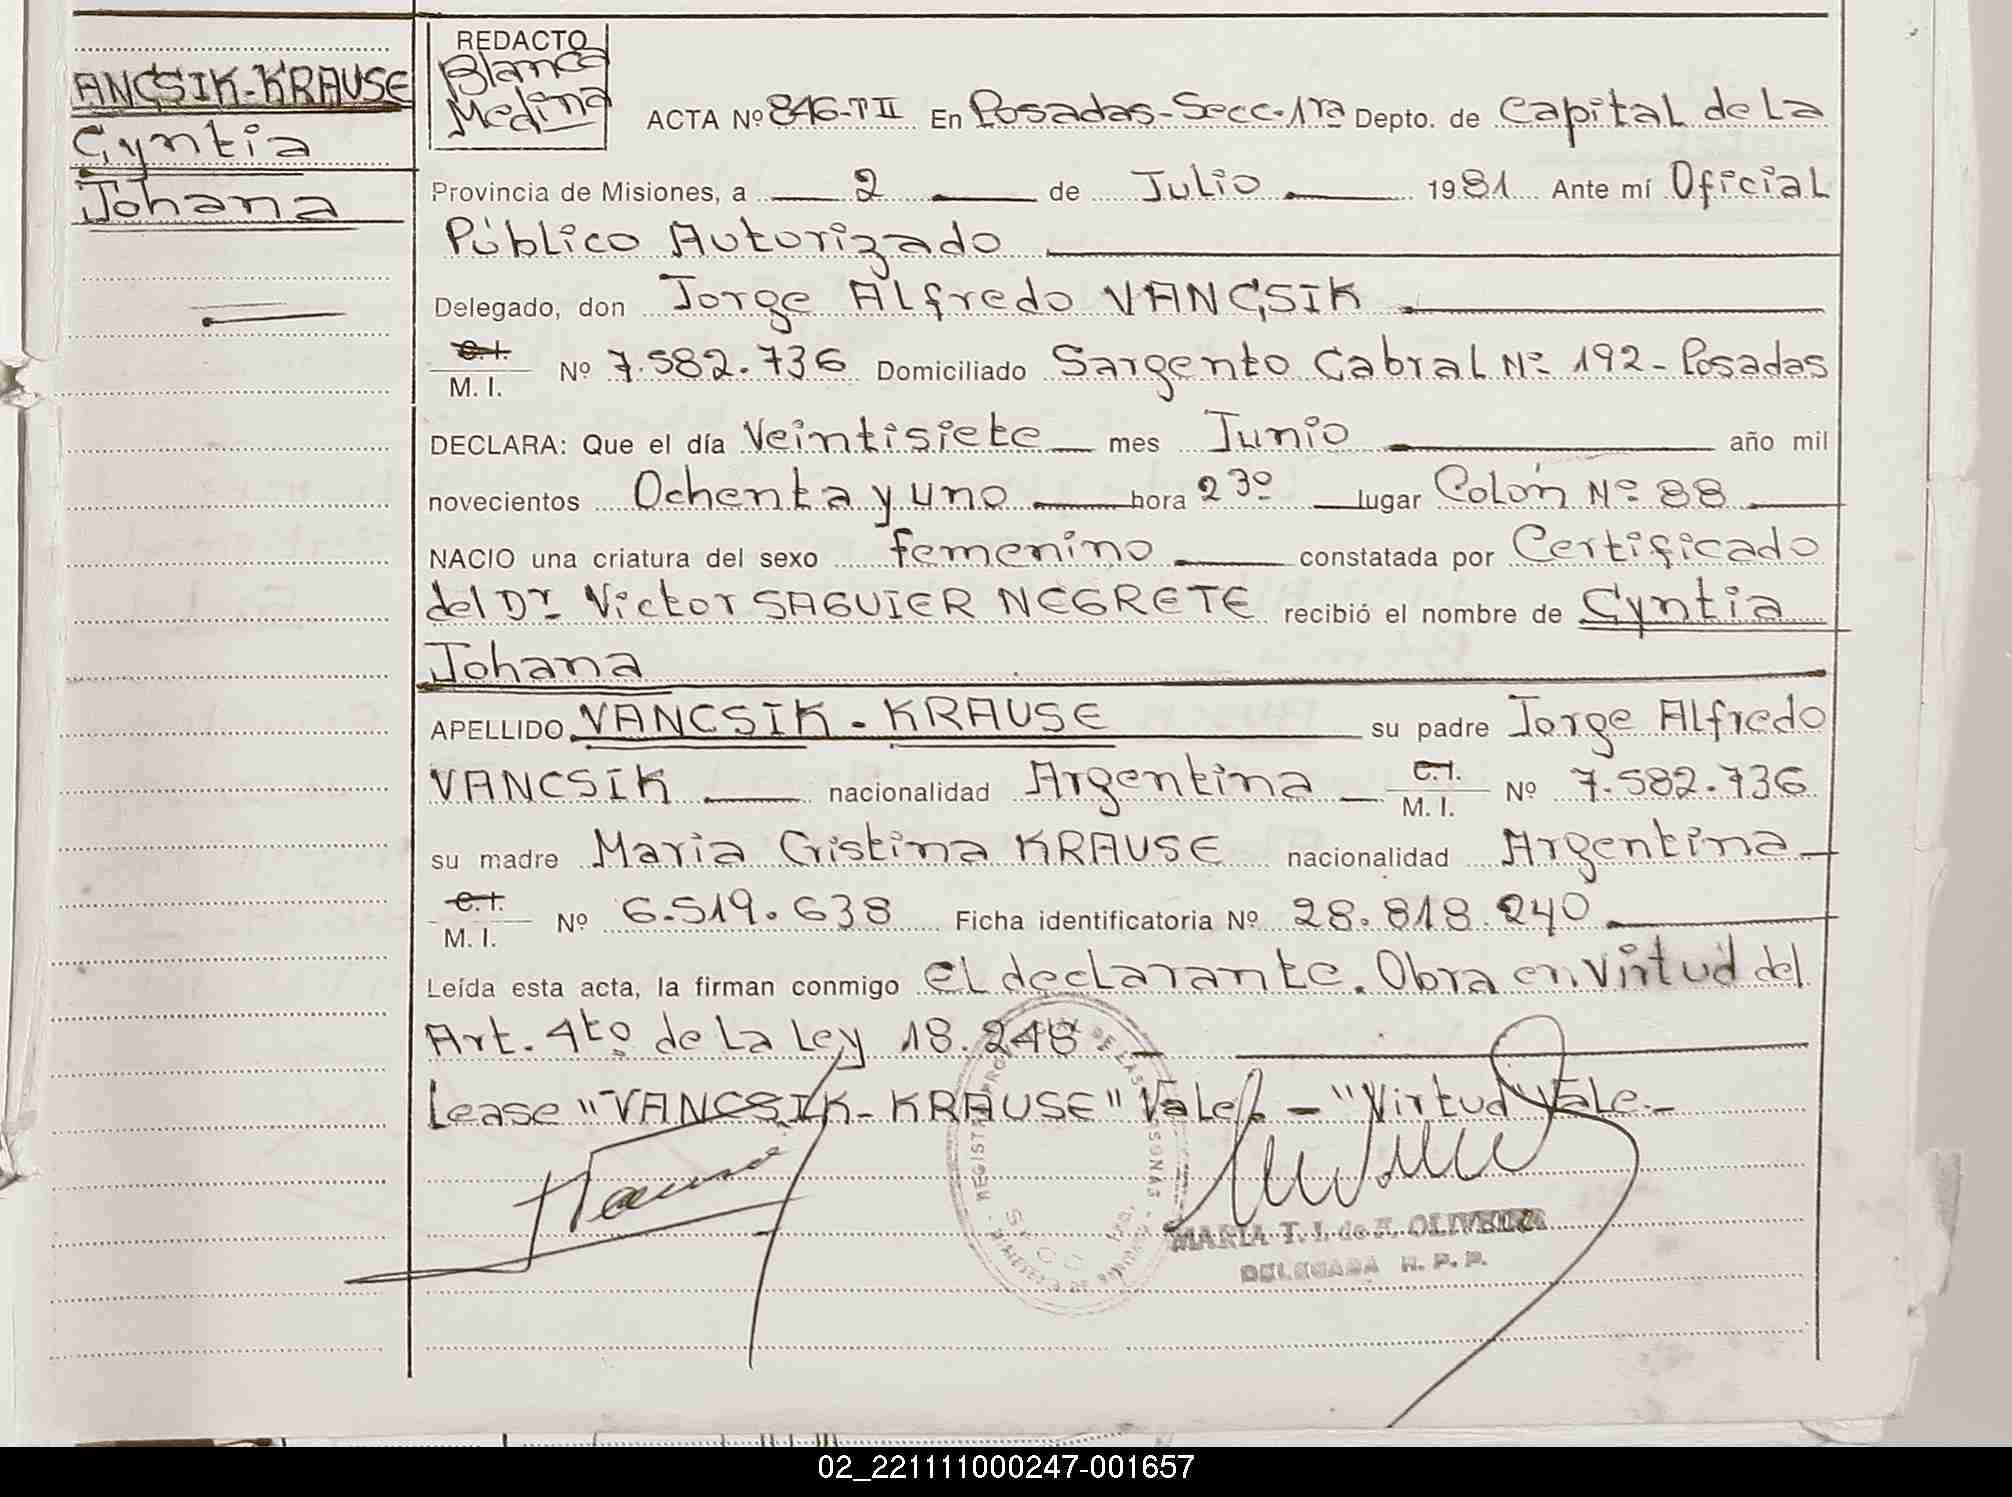 ANCSIK-KRAUSE
Cyntia
Johana
REDACTO
Blanca
Medina
ACTA Nº 846-TII En Posadas-Secc.1ra Depto. de Capital de La
Provincia de Misiones, a 2 de Julio 1981 Ante mí Oficial
Público Autorizado
Delegado, don Jorge Alfredo VANCSIK
C.I.
M. I. Nº 7.582.736 Domiciliado Sargento Cabral Nº 192 - Posadas
DECLARA: Que el día Veintisiete mes Junio año mil
novecientos Ochenta y uno hora 23º lugar Colón Nº 88
NACIO una criatura del sexo femenino constatada por Certificado
del Dr. Victor SAGUIER NEGRETE recibió el nombre de Cyntia
Johana
APELLIDO VANCSIK - KRAUSE su padre Jorge Alfredo
VANCSIK nacionalidad Argentina C.I. M. I. Nº 7.582.736
su madre Maria Cristina KRAUSE nacionalidad Argentina
C.I.
M. I. Nº 6.519.638 Ficha identificatoria Nº 28.818.240
Leída esta acta, la firman conmigo el declarante. Obra en Virtud del
Art. 4to de La Ley 18.248
Lease "VANCSIK-KRAUSE" Vale. - "Virtud" Vale.-
MARIA T. I. de A. OLIVEIRA
DELEGADA R. P. P.
02_221111000247-001657